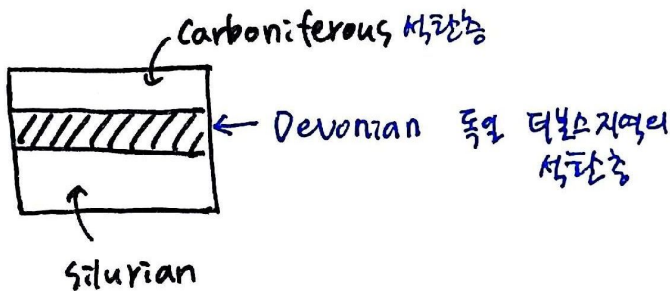 Carboniferous 석탄층
Devonian 독일 더본스지역의
석탄층
silurian